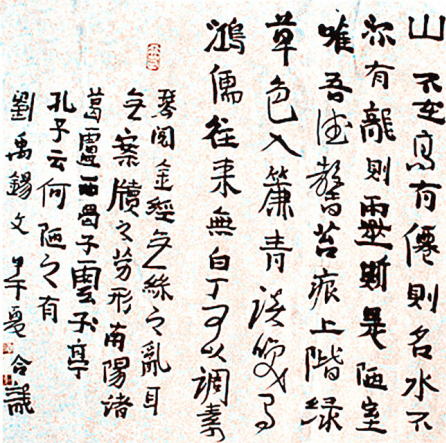 山不在高有僊則名水不
深有龍則靈斯是陋室
唯吾德馨苔痕上階緑
草色入簾青談笑有
鴻儒往来無白丁可以調素
琴閲金經无絲之亂耳
无案牘之劳形南陽諸
葛廬西蜀子雲亭
孔子云何陋之有
劉禹錫文 甲午夏